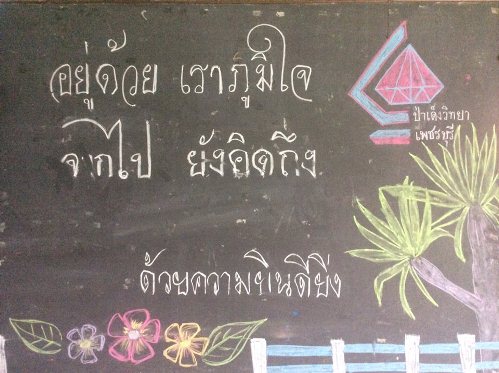 อยู่ด้วย เราภูมิใจ
จากไป ยังคิดถึง
ป่าเด็งวิทยา
เพชรบุรี
ด้วยความยินดียิ่ง